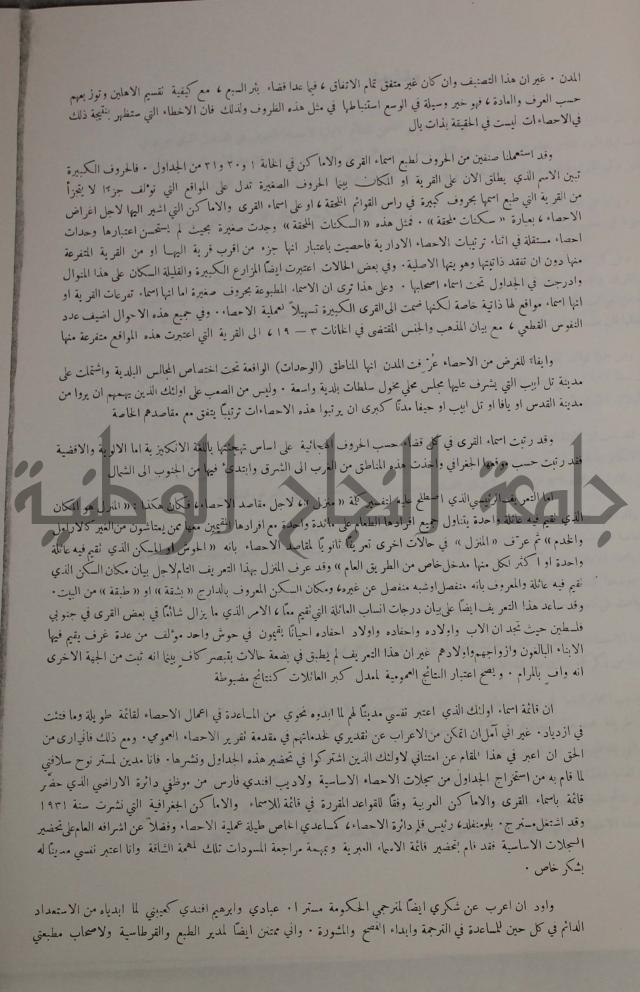 المدن ٠ غير ان هذا التصنيف وان كان غير متفق تمام الاتفاق ، فيما عدا قضاء بئر السبع ، مع كيفية تقسيم الاهلين وتوزيعهم
حسب العرف والعادة ، فهو خير وسيلة في الوسع استنباطها في مثل هذه الظروف ولذلك فان الاخطاء التي ستظهر بنتيجة ذلك
في الاحصاءات ليست في الحقيقة بذات بال
وقد استعملنا صنفين من الحروف لطبع اسماء القرى والاماكن في الخانة ١ و٢٠ و٣١ من الجداول ٠ فالحروف الكبيرة
تبين الاسم الذي يطلق الان على القرية او المكان بينما الحروف الصغيرة تدل على المواقع التي تؤلف جزءًا لا يتجزأ
من القرية التي طبع اسمها بحروف كبيرة في راس القوائم الملحقة ، او على اسماء القرى والاماكن التي اشير اليها لاجل اغراض
الاحصاء ، بعبارة « سكنات ملحقة » ٠ فمثل هذه « السكنات الملحقة » وجدت صغيرة بحيث لم يستحسن اعتبارها وحدات
احصاء مستقلة في اثناء ترتيبات الاحصاء الادارية فاحصيت باعتبار انها جزء من اقرب قرية اليها او من القرية المتفرعة
منها دون ان تفقد ذاتيتها وهويتها الاصلية٠ وفي بعض الحالات اعتبرت ايضًا المزارع الكبيرة والقليلة السكان على هذا المنوال
وادرجت في الجداول تحت اسماء اصحابها ٠ وعلى هذا ترى ان الاسماء المطبوعة بحروف صغيرة اما انها اسماء تفرعات القرية او
انها اسماء مواقع لها ذاتية خاصة لكنها ضمت الى القرى الكبيرة تسهيلاً لعملية الاحصاء٠ وفي جميع هذه الاحوال اضيف عدد
النفوس القطعي ، مع بيان المذهب والجنس المقتضى في الخانات ٣ — ١٩ ، الى القرية التي اعتبرت هذه المواقع متفرعة منها
وايفاءً للغرض من الاحصاء عُرّفت المدن انها المناطق (الوحدات) الواقعة تحت اختصاص المجالس البلدية واشتملت على
مدينة تل ابيب التي يشرف عليها مجلس محلي مخول سلطات بلدية واسعة ٠ وليس من الصعب على اولئك الذين يهمهم ان يروا من
مدينة القدس او يافا او تل ابيب او حيفا مدنًا كبرى ان يرتبوا هذه الاحصاءات ترتيبًا يتفق مع مقاصدهم الخاصة
وقد رتبت اسماء القرى في كل قضاء حسب الحروف الهجائية على اساس تهجئتها باللغة الانكليزية اما الالوية والاقضية
فقد رتبت حسب موقعها الجغرافي واخذت هذه المناطق من الغرب الى الشرق وابتدئ فيها من الجنوب الى الشمال
اما التعريف الرئيسي الذي اصطلح عليه لتفسير كلمة « منزل » ، لاجل مقاصد الاحصاء، فكان هكذا : « المنزل هو المكان
الذي تقيم فيه عائلة واحدة يتناول جميع افرادها الطعام على مائدة واحدة مع افرادها المقيمين معها ممن يعتاشون من الغير كالارامل
والخدم » ثم عرّف « المنزل » في حالات اخرى تعريفًا ثانويًا لمقاصد الاحصاء بانه « الحوش او المسكن الذي تقيم فيه عائلة
واحدة او اكثر لكل منها مدخل خاص من الطريق العام » وقد عرف المنزل بهذا التعريف التام لاجل بيان مكان السكن الذي
تقيم فيه عائلة والمعروف بانه منفصل او شبه منفصل عن غيره، ومكان السكن المعروف بالدارج « بشقة » او « طبقة » من البيت٠
وقد ساعد هذا التعريف ايضًا على بيان درجات انساب العائلة التي تقيم معًا ، الامر الذي ما يزال شائعًا في بعض القرى في جنوبي
فلسطين حيث تجد ان الاب واولاده واحفاده واولاد احفاده احيانًا يقيمون في حوش واحد مؤلف من عدة غرف يقيم فيها
الابناء البالغون وازواجهم واولادهم غير ان هذا التعريف لم يطبق في بضعة حالات بتبصر كاف بينما انه ثبت من الجهة الاخرى
انه واف بالمرام ٠ ويصح اعتبار النتائج العمومية لمعدل كبر العائلات كنتائج مضبوطة
ان قائمة اسماء اولئك الذي اعتبر نفسي مدينًا لهم لما ابدوه نحوي من المساعدة في اعمال الاحصاء لقائمة طويلة وما فتئت
في ازدياد٠ غير اني آمل ان اتمكن من الاعراب عن تقديري لخدماتهم في مقدمة تقرير الاحصاء العمومي٠ ومع ذلك فاني ارى من
الحق ان اعبر في هذا المقام عن امتناني لاولئك الذين اشتركوا في تحضير هذه الجداول ونشرها٠ فانا مدين لمستر نوح سلافني
لما قام به من استخراج الجداول من سجلات الاحصاء الاساسية ولاديب افندي فارس من موظفي دائرة الاراضي الذي حضّر
قائمة باسماء القرى والاماكن العربية وفقًا للقواعد المقررة في قائمة للاسماء والاماكن الجغرافية التي نشرت سنة ١٩٣١
وقد اشتغل مستر ج٠ بلومنفلد، رئيس قلم دائرة الاحصاء، كمساعدي الخاص طيلة عملية الاحصاء وفضلاً عن اشرافه العام على تحضير
السجلات الاساسية فقد قام بتحضير قائمة الاسماء العبرية وبمهمة مراجعة المسودات تلك المهمة الشاقة وانا اعتبر نفسي مدينًا له
بشكر خاص ٠
واود ان اعرب عن شكري ايضًا لمترجمي الحكومة مستر ا٠ عبادي وابرهيم افندي كعيبني لما ابدياه من الاستعداد
الدائم في كل حين للمساعدة في الترجمة وابداء النصح والمشورة ٠ واني ممتن ايضًا لمدير الطبع والقرطاسية ولاصحاب مطبعتي
جامعة النجاح الوطنية